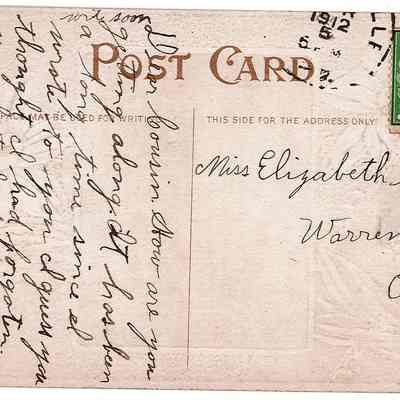 write soon
POST CARD
1912
5
THIS SIDE FOR THE ADDRESS ONLY
MAY BE USED FOR
Dear Cousin How are you
getting along. It has been
a long time since I
wrote to you I guess you
thought I had forgoten
Miss Elizabeth
Warren